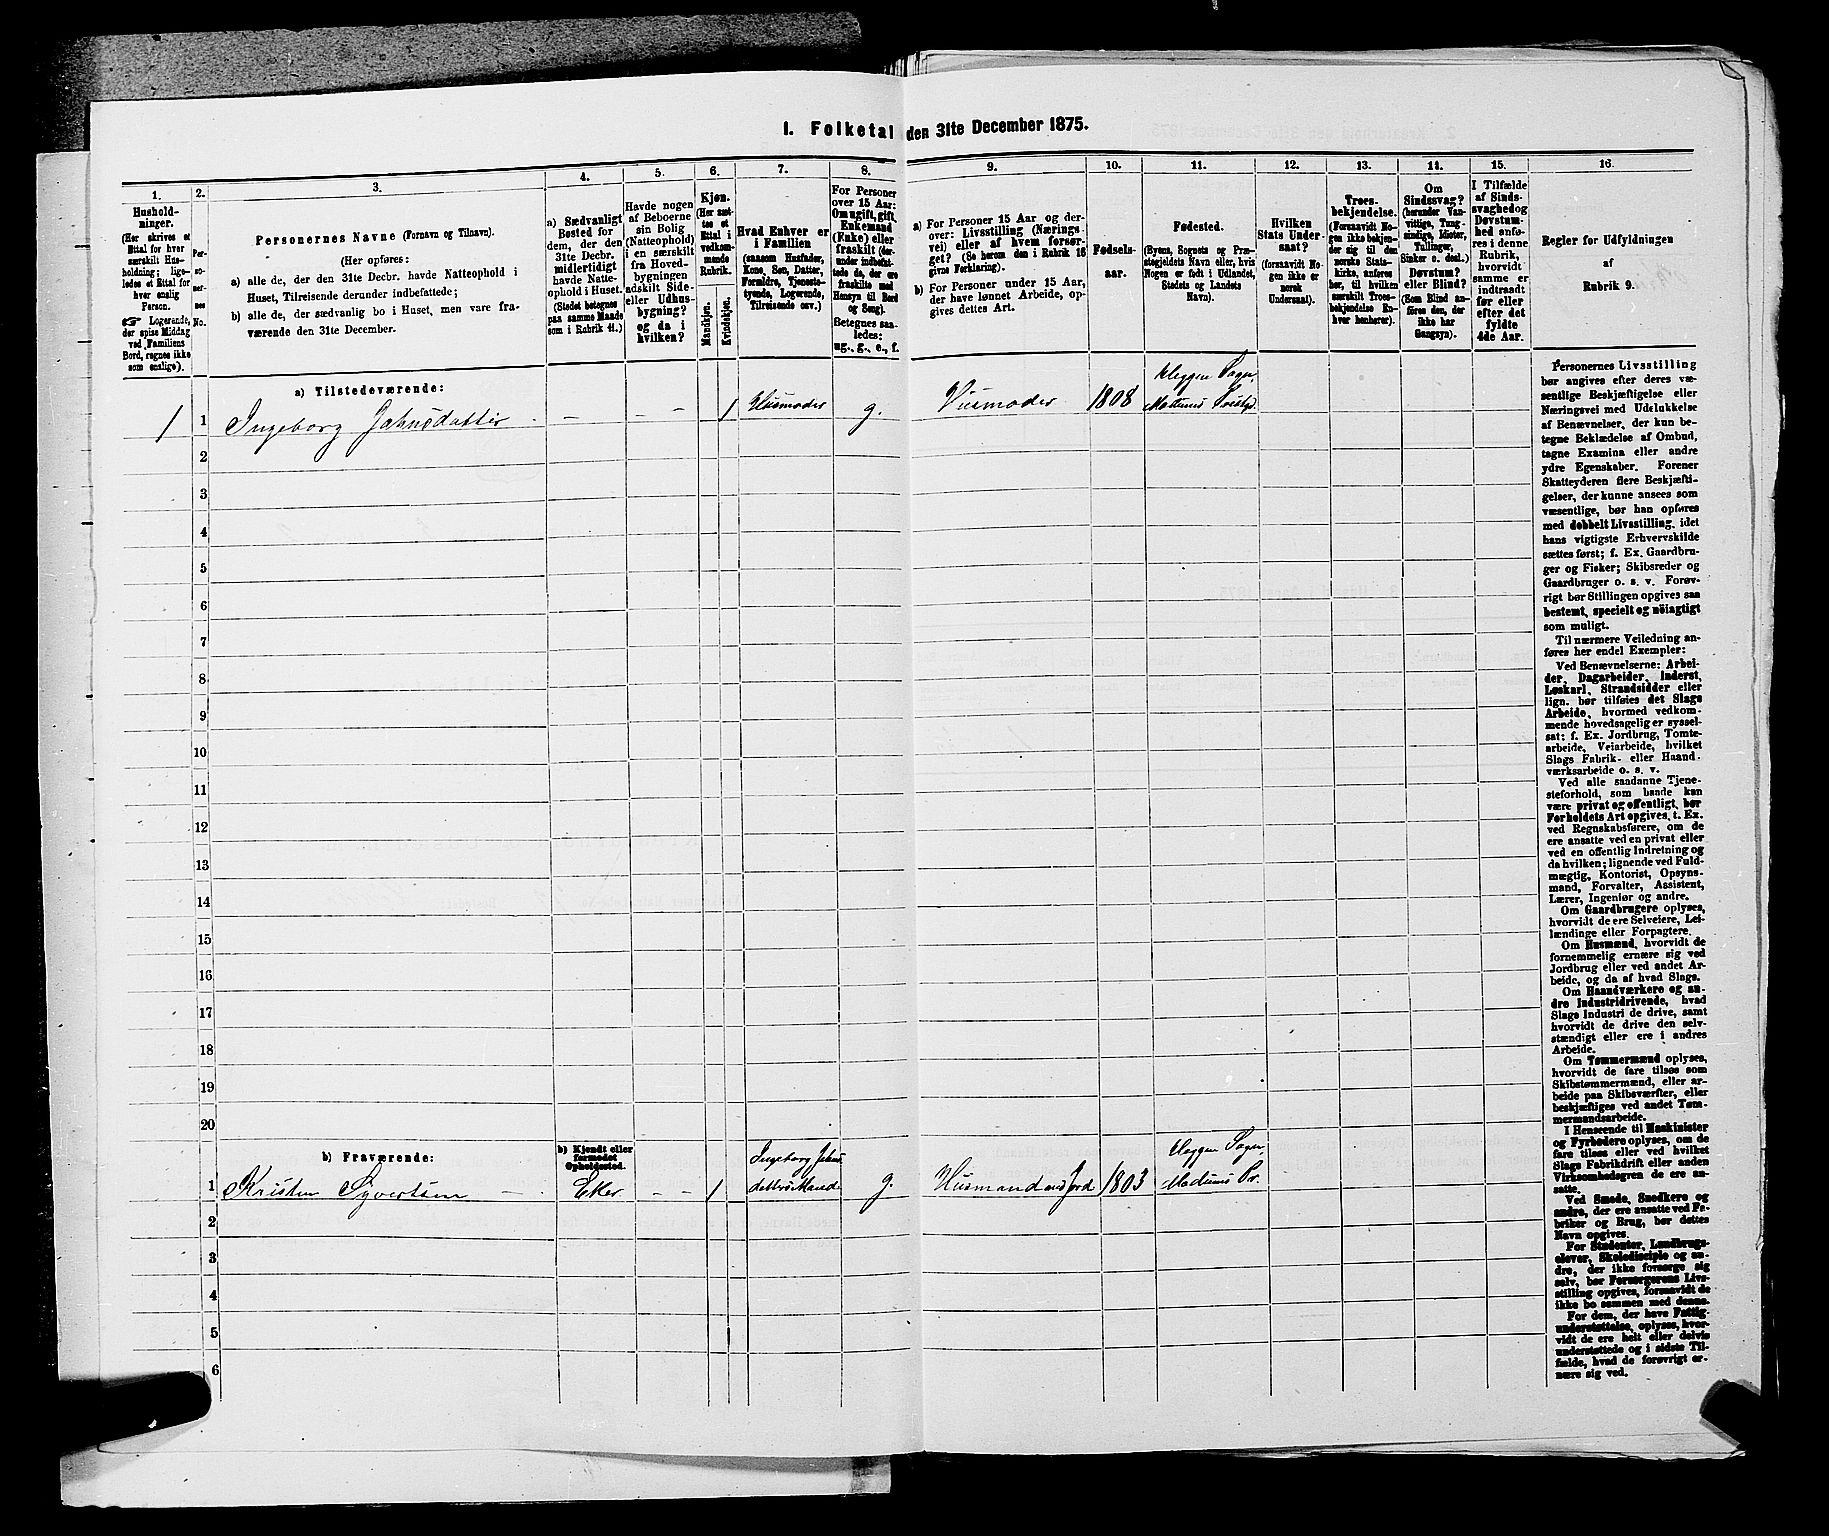 1. Folketal den 31te December 1875.
1.
2.
3.
4.
5.
6.
7.
8.
9.
10.
11.
12.
13.
14.
15.
16.
Hushold-
ninger.
(Her skrives et
Ettal for hver
særskilt Hus-
holdning; lige-
ledes et Ettal for
hver enslig
Person.
☞ Logerende,
der spise Middag
ved Familiens
Bord, regnes ikke
som enslige).
Per-
so-
ner-
nes
No.
Personernes Navne (Fornavn og Tilnavn).
(Her opføres:
a) alle de, der den 31te Decbr. havde Natteophold i
Huset, Tilreisende derunder indbefattede;
b) alle de, der sædvanlig bo i Huset, men vare fra-
værende den 31te December.
a) Sædvanligt
Bosted for
dem, der den
31te Decbr.
midlertidigt
havde Natte-
ophold i Huset.
(Stedet betegnes
paa samme Maade
som i Rubrik 11.)
Havde nogen
af Beboerne
sin Bolig
(Natteophold)
i en særskilt
fra Hoved-
bygningen
adskilt Side-
eller Udhus-
bygning?
og da i
hvilken?
Kjøn.
(Her sæt-
tes et
Ettal i
vedkom-
mende
Rubrik.
Mandkjøn.
Kvindekjøn.
Hvad Enhver er
i Familien
(saasom Husfader,
Kone, Søn, Datter,
Forældre, Tjeneste-
tyende, Logerende,
Tilreisende osv.)
For Personer
over 15 Aar:
Om ugift, gift,
Enkemand
(Enke) eller
fraskilt (der-
under indbefat-
tede de, der ere
fraskilte med
Hensyn til Bord
og Seng).
Betegnes saa-
ledes:
ug., g., e., f.
a) For Personer 15 Aar og der-
over: Livsstilling (Nærings-
vei) eller af hvem forsør-
get? (Se herom den i Rubrik 16
givne Forklaring).
b) For Personer under 15 Aar,
der have lønnet Arbeide, op-
gives dettes Art.
Fødsels-
aar.
Fødested.
(Byens, Sognets og Præ-
stegjeldets Navn eller, hvis
Nogen er født i Udlandet,
Stedets og Landets
Navn).
Hvilken
Stats Under-
saat?
(forsaavidt No-
gen ikke er
norsk
Undersaat).
Troes-
bekjendelse.
(Forsaavidt No-
gen ikke bekjen-
der sig til den
norske Stats-
kirke, anføres
her, til hvilken
særskilt Troes-
bekjendelse En-
hver henhører).
Om
Sindssvag?
(herunder Van-
vittige, Tung-
sindige, Idioter,
Tullinger,
Sinker o. desl.)
Døvstum?
eller Blind?
(Som Blind an-
føres den, der
ikke har
Gangsyn).
I Tilfælde
af Sinds-
svaghed og
Døvstum-
hed anfø-
res i denne
Rubrik,
hvorvidt
samme er
indtraadt
før eller
efter det
fyldte
4de Aar.
Regler for Udfyldningen
af
Rubrik 9.
a) Tilstedeværende:
1 1 Ingeborg Johnsdatter - - - 1 Husmoder g. Husmoder 1808
2
3
4
5
6
7
8
9
10
11
12
13
14
15
16
17
18
19
20
b) Fraværende:
b) Kjendt eller
formodet
Opholdssted.
1 Kristen Syvertsen - Eker - - 1 Ingeborg Johns
datters Mand g. Husmand med Jord 1803
2
3
4
5
6
Personernes Livsstilling
bør angives efter deres væ-
sentlige Beskjæftigelse eller
Næringsvei med Udelukkelse
af Benævnelser, der kun be-
tegne Beklædelse af Ombud,
tagne Examina eller andre
ydre Egenskaber. Forener
Skatteyderen flere Beskjæfti-
gelser, der kunne ansees som
væsentlige, bør han opføres
med dobbelt Livsstilling, idet
hans vigtigste Erhvervskilde
sættes først; f. Ex. Gaardbru-
ger og Fisker; Skibsreder og
Gaardbruger o. s. v. Forøv-
rigt bør Stillingen opgives saa
bestemt, specielt og nöiagtigt
som muligt.
Til nærmere Veiledning an-
føres her endel Exempler:
Ved Benævnelserne: Arbei-
der, Dagarbeider, Inderst,
Løskarl, Strandsidder eller
lign. bør tilføies det Slags
Arbeide, hvormed vedkom-
mende hovedsagelig er syssel-
sat; f. Ex. Jordbrug, Tomte-
arbeide, Veiarbeide, hvilket
Slags Fabrik- eller Haand-
værksarbeide o. s. v.
Ved alle saadanne Tjene-
steforhold, som baade kan
være privat og offentligt, bør
Forholdets Art opgives, t. Ex.
ved Regnskabsførere, om de
ere ansatte ved en privat eller
ved en offentlig Indretning og
da hvilken; lignende ved Fuld-
mægtig, Kontorist, Opsyns-
mand, Forvalter, Assistent,
Lærer, Ingeniør og andre.
Om Gaardbrugere oplyses,
hvorvidt de ere Selveiere, Lei-
lændinge eller Forpagtere.
Om Husmænd, hvorvidt de
fornemmelig ernære sig ved
Jordbrug eller ved andet Ar-
beide, og da af hvad Slags.
Om Haandværkere og an-
dre Industridrivende, hvad
Slags Industri de drive, samt
hvorvidt de drive den selv-
stændigt eller ere i andres
Arbeide.
Om Tømmermænd oplyses,
hvorvidt de fare tilsøs som
Skibstømmermænd, eller ar-
beide paa Skibsværfter, eller
beskjæftiges ved andet Tøm-
mermandsarbeide.
I Henseende til Maskinister
og Fyrbødere oplyses, om de
fare tilsøs eller ved hvilket
Slags Fabrikdrift eller anden
Virksomhedsgren de ere an-
satte.
Ved Smede, Snedkere og
andre, der ere ansatte ved Fa-
briker og Brug, bør dettes
Navn opgives.
For Studenter, Landbrugs-
elever, Skoledisciple og an-
dre, der ikke forsørge sig
selv, bør Forsørgerens Livs-
stilling opgives, forsaavidt de
ikke bo sammen med denne.
For dem, der have Fattig-
understøttelse, oplyses, hvor-
vidt de ere helt eller delvis
understøttede og i sidste Til-
fælde, hvad de forøvrigt er-
nære sig ved.